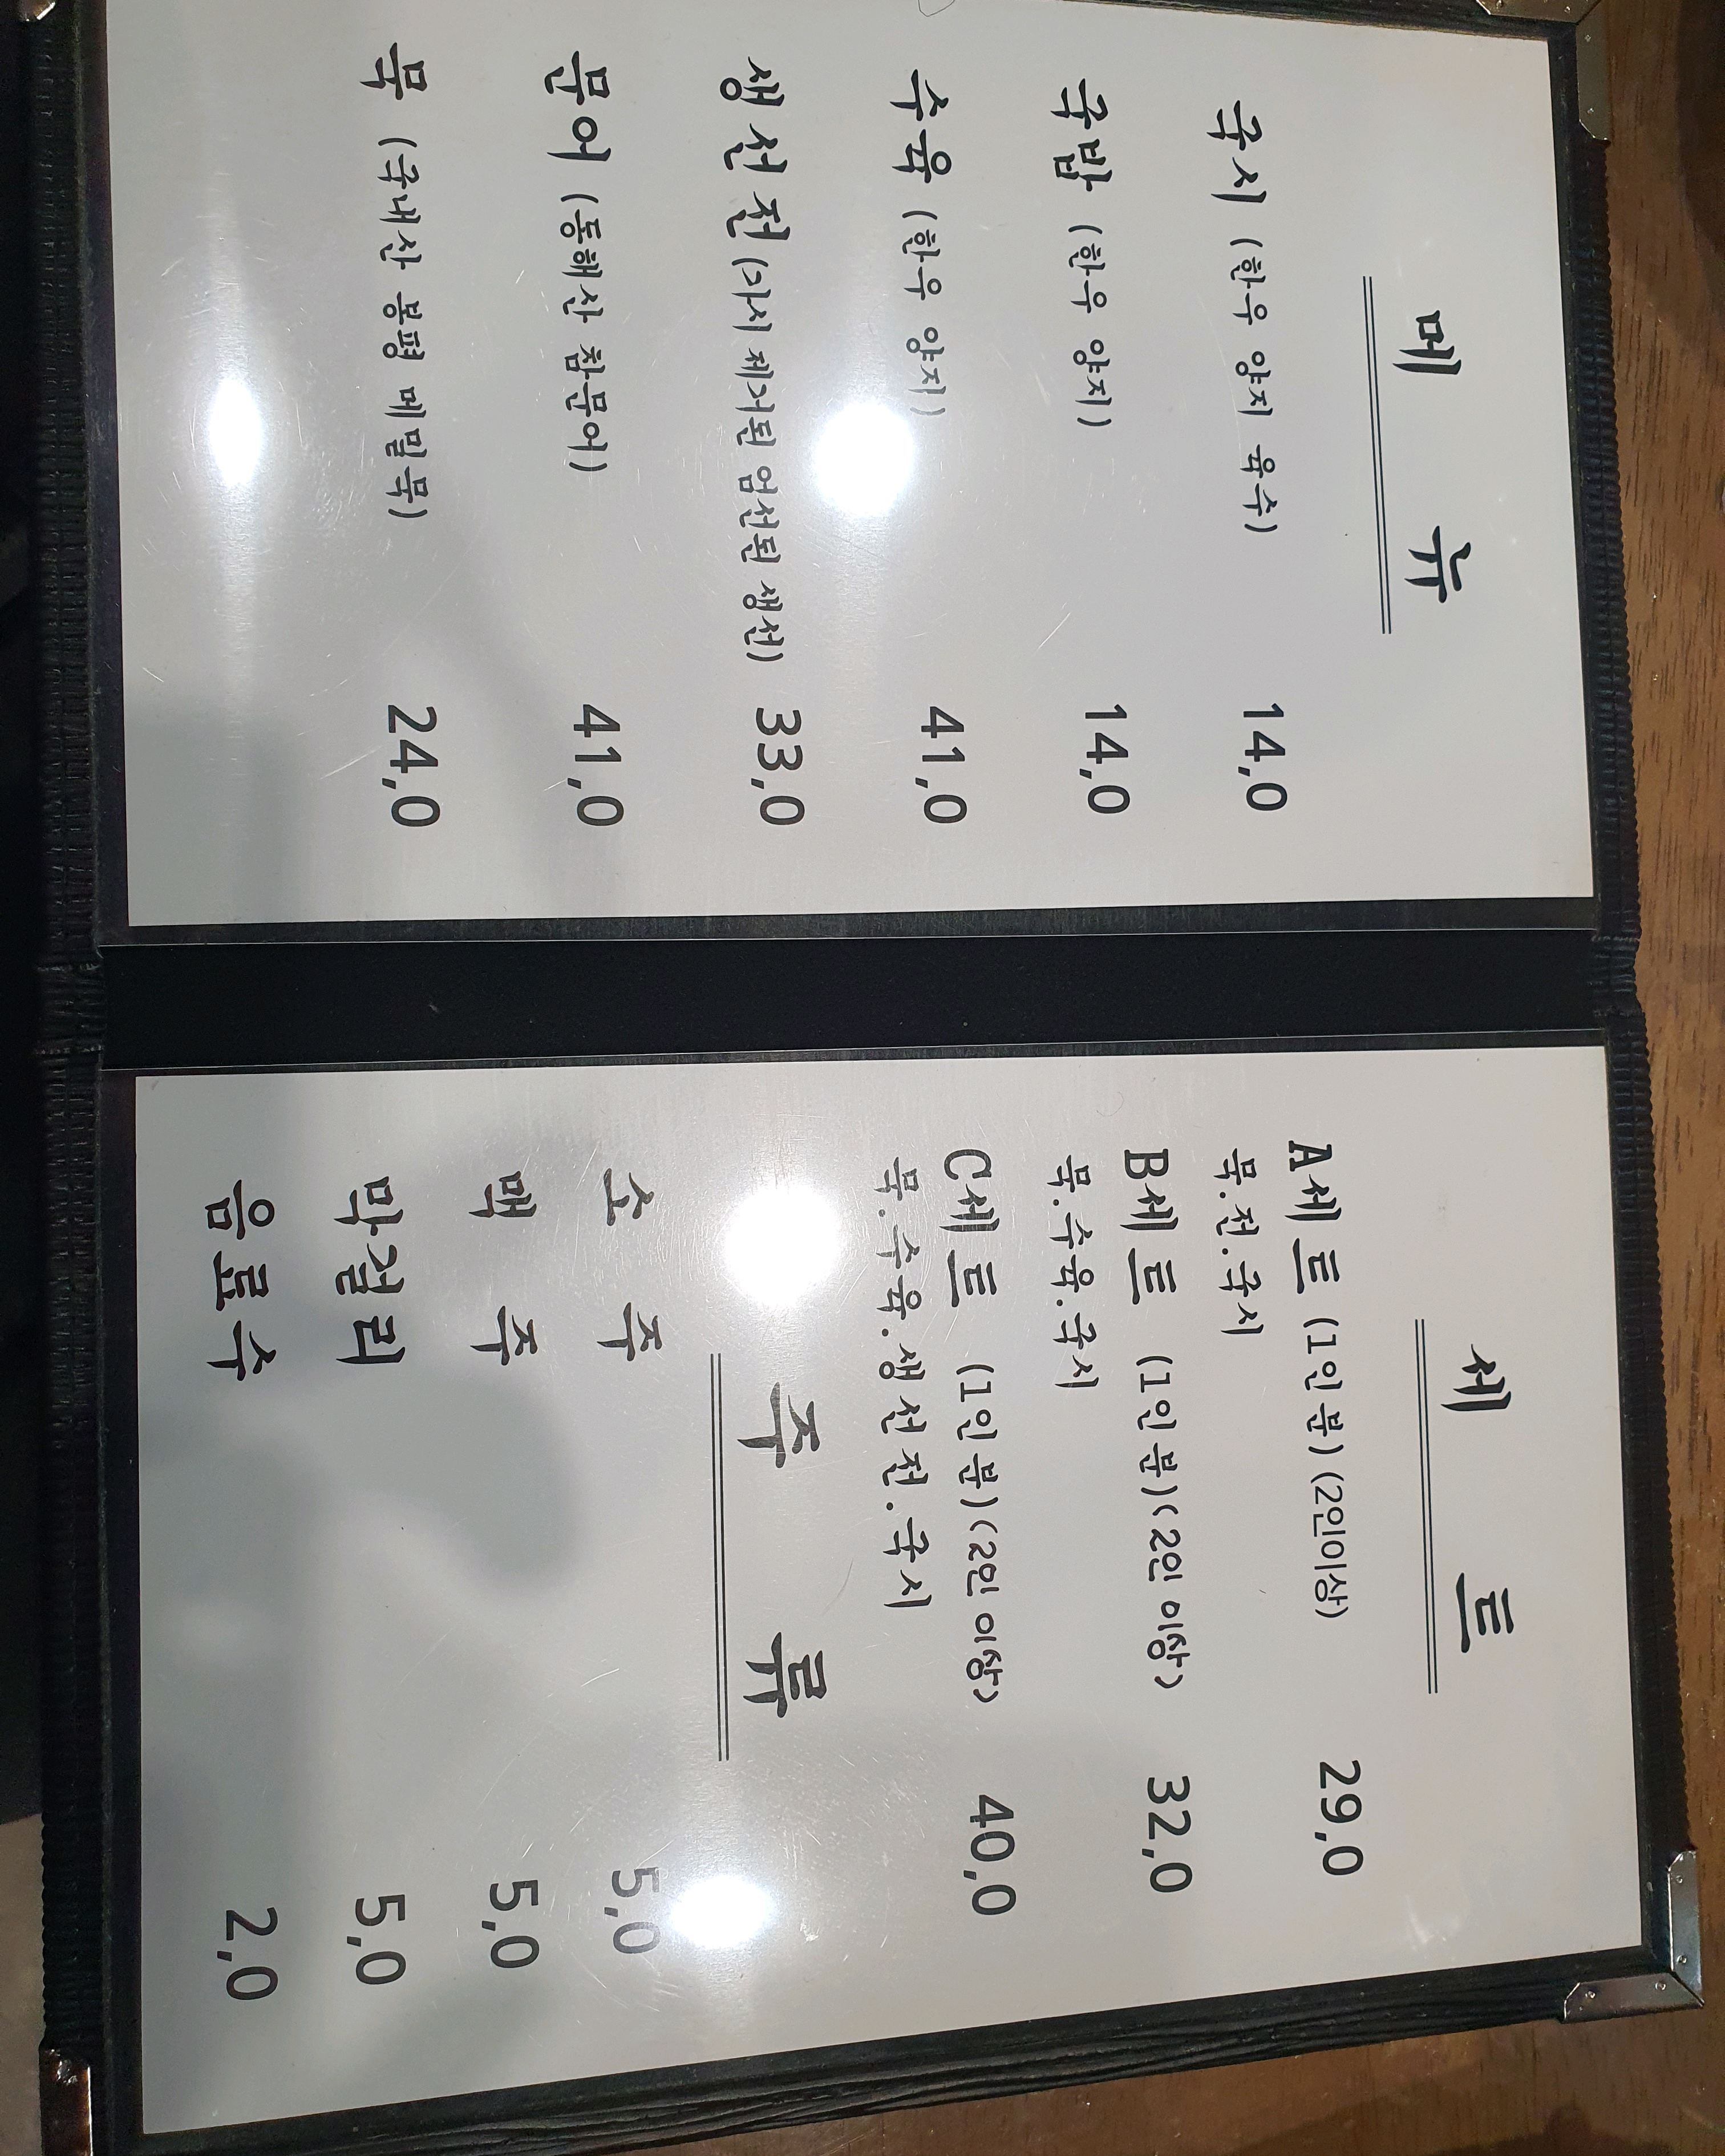 메 뉴
국시 (한우 양지 육수) 14,0
국밥 (한우 양지) 14,0
수육 (한우 양지) 41,0
생선전 (가시 제거된 엄선된 생선) 33,0
문어 (동해산 참문어) 41,0
묵 (국내산 봉평 메밀묵) 24,0
세 트
A세트 (1인분) (2인이상) 29,0
묵.전.국시
B세트 (1인분) (2인 이상) 32,0
묵.수육.국시
C세트 (1인분) (2인 이상) 40,0
묵.수육.생선전.국시
주 류
소 주 5,0
맥 주 5,0
막걸리 5,0
음료수 2,0